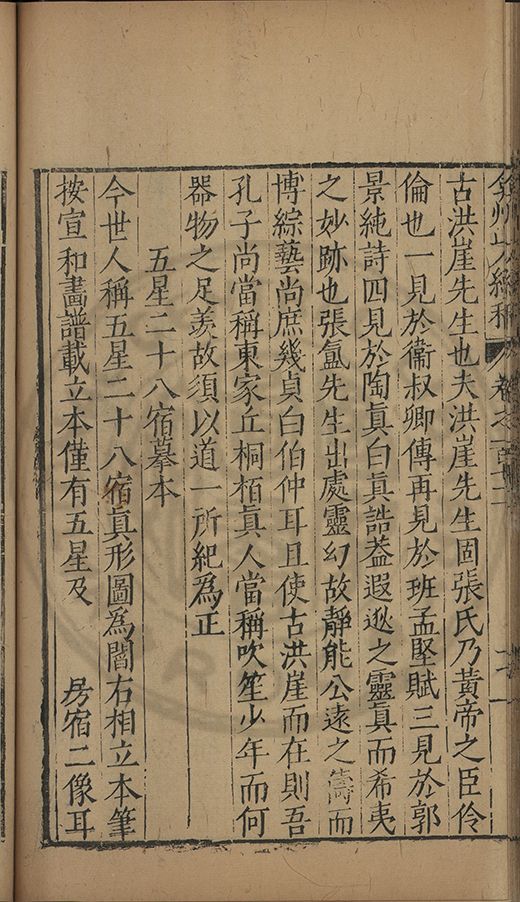 弇州山人續稿 卷之一百
古洪崖先生也夫洪崖先生固張氏乃黃帝之臣伶
倫也一見於衞叔卿傳再見於班孟堅賦三見於郭
景純詩四見於陶真白真誥葢遐逖之靈真而希夷
之妙跡也張氳先生出處靈幻故靜能公遠之儔而
博綜藝尚庶幾貞白伯仲耳且使古洪崖而在則吾
孔子尚當稱東家丘桐栢真人當稱吹笙少年而何
器物之足羨故須以道一所紀為正
五星二十八宿摹本
今世人稱五星二十八宿真形圖為閻右相立本筆
按宣和畫譜載立本僅有五星及 房宿二像耳